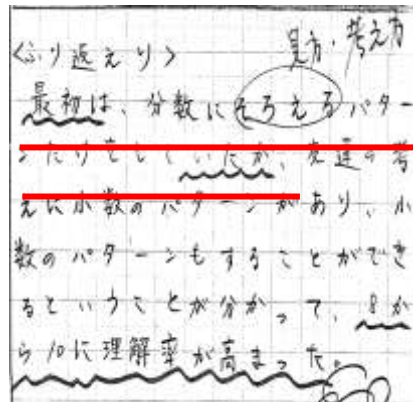 見方・考え方
<ふり返えり>
最初は、分数にそろえるパター
ンたりをしていたが、友達の考
えに小数のパターンがあり、小
数のパターンもすることができ
るということが分かって、8か
ら10に理解率が高まった。